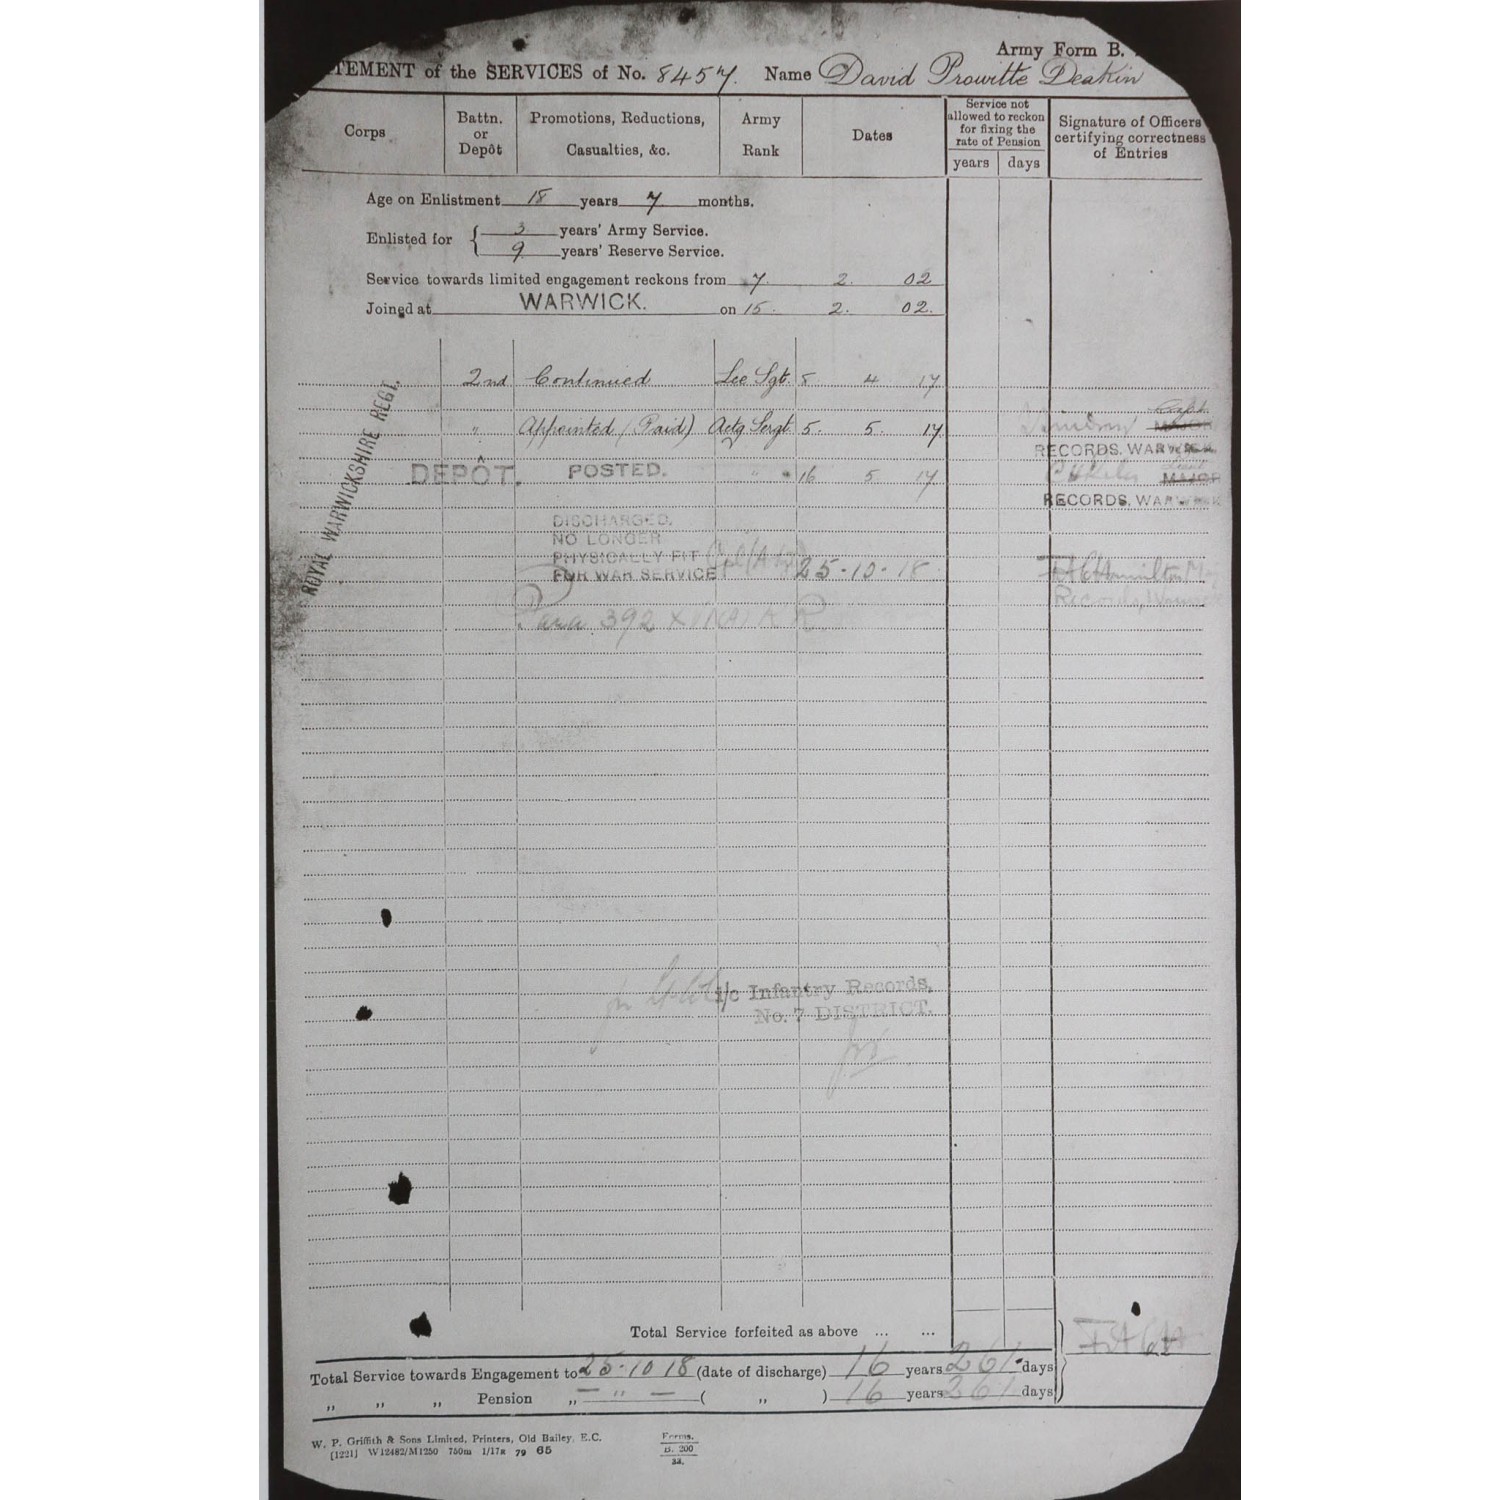 Army Form B.
TEMENT of the SERVICES of No. 8457. Name David Prowitte Deakin
Corps
Battn. or Depôt
Promotions, Reductions, Casualties, &c.
Army Rank
Dates
Service not allowed to reckon for fixing the rate of Pension
years days
Signature of Officers certifying correctness of Entries
Age on Enlistment 18 years 7 months.
Enlisted for { 3 years' Army Service.
9 years' Reserve Service.
Service towards limited engagement reckons from 7. 2. 02
Joined at WARWICK. on 15. 2. 02.
ROYAL WARWICKSHIRE REGT.
2nd Continued Lce Sgt. 5 4 17
" Appointed (Paid) Actg Sergt 5. 5. 17 Capt. MAJOR
RECORDS. WARWICK
DEPÔT. POSTED. " 16 5 17 MAJOR
RECORDS, WARWICK
DISCHARGED.
NO LONGER
PHYSICALLY FIT
FOR WAR SERVICE 25-10-18 Hamilton
Records, Warwick
Para 392 X
for i/c Infantry Records,
No. 7 DISTRICT.
Total Service forfeited as above ... ...
Total Service towards Engagement to 25-10 18 (date of discharge) 16 years 261 days
" " " Pension " — " — ( " ) 16 years 261 days
W. P. Griffith & Sons Limited, Printers, Old Bailey, E.C.
[1221] W12482/M1250 750m 1/17R 79 65
Forms.
B. 200